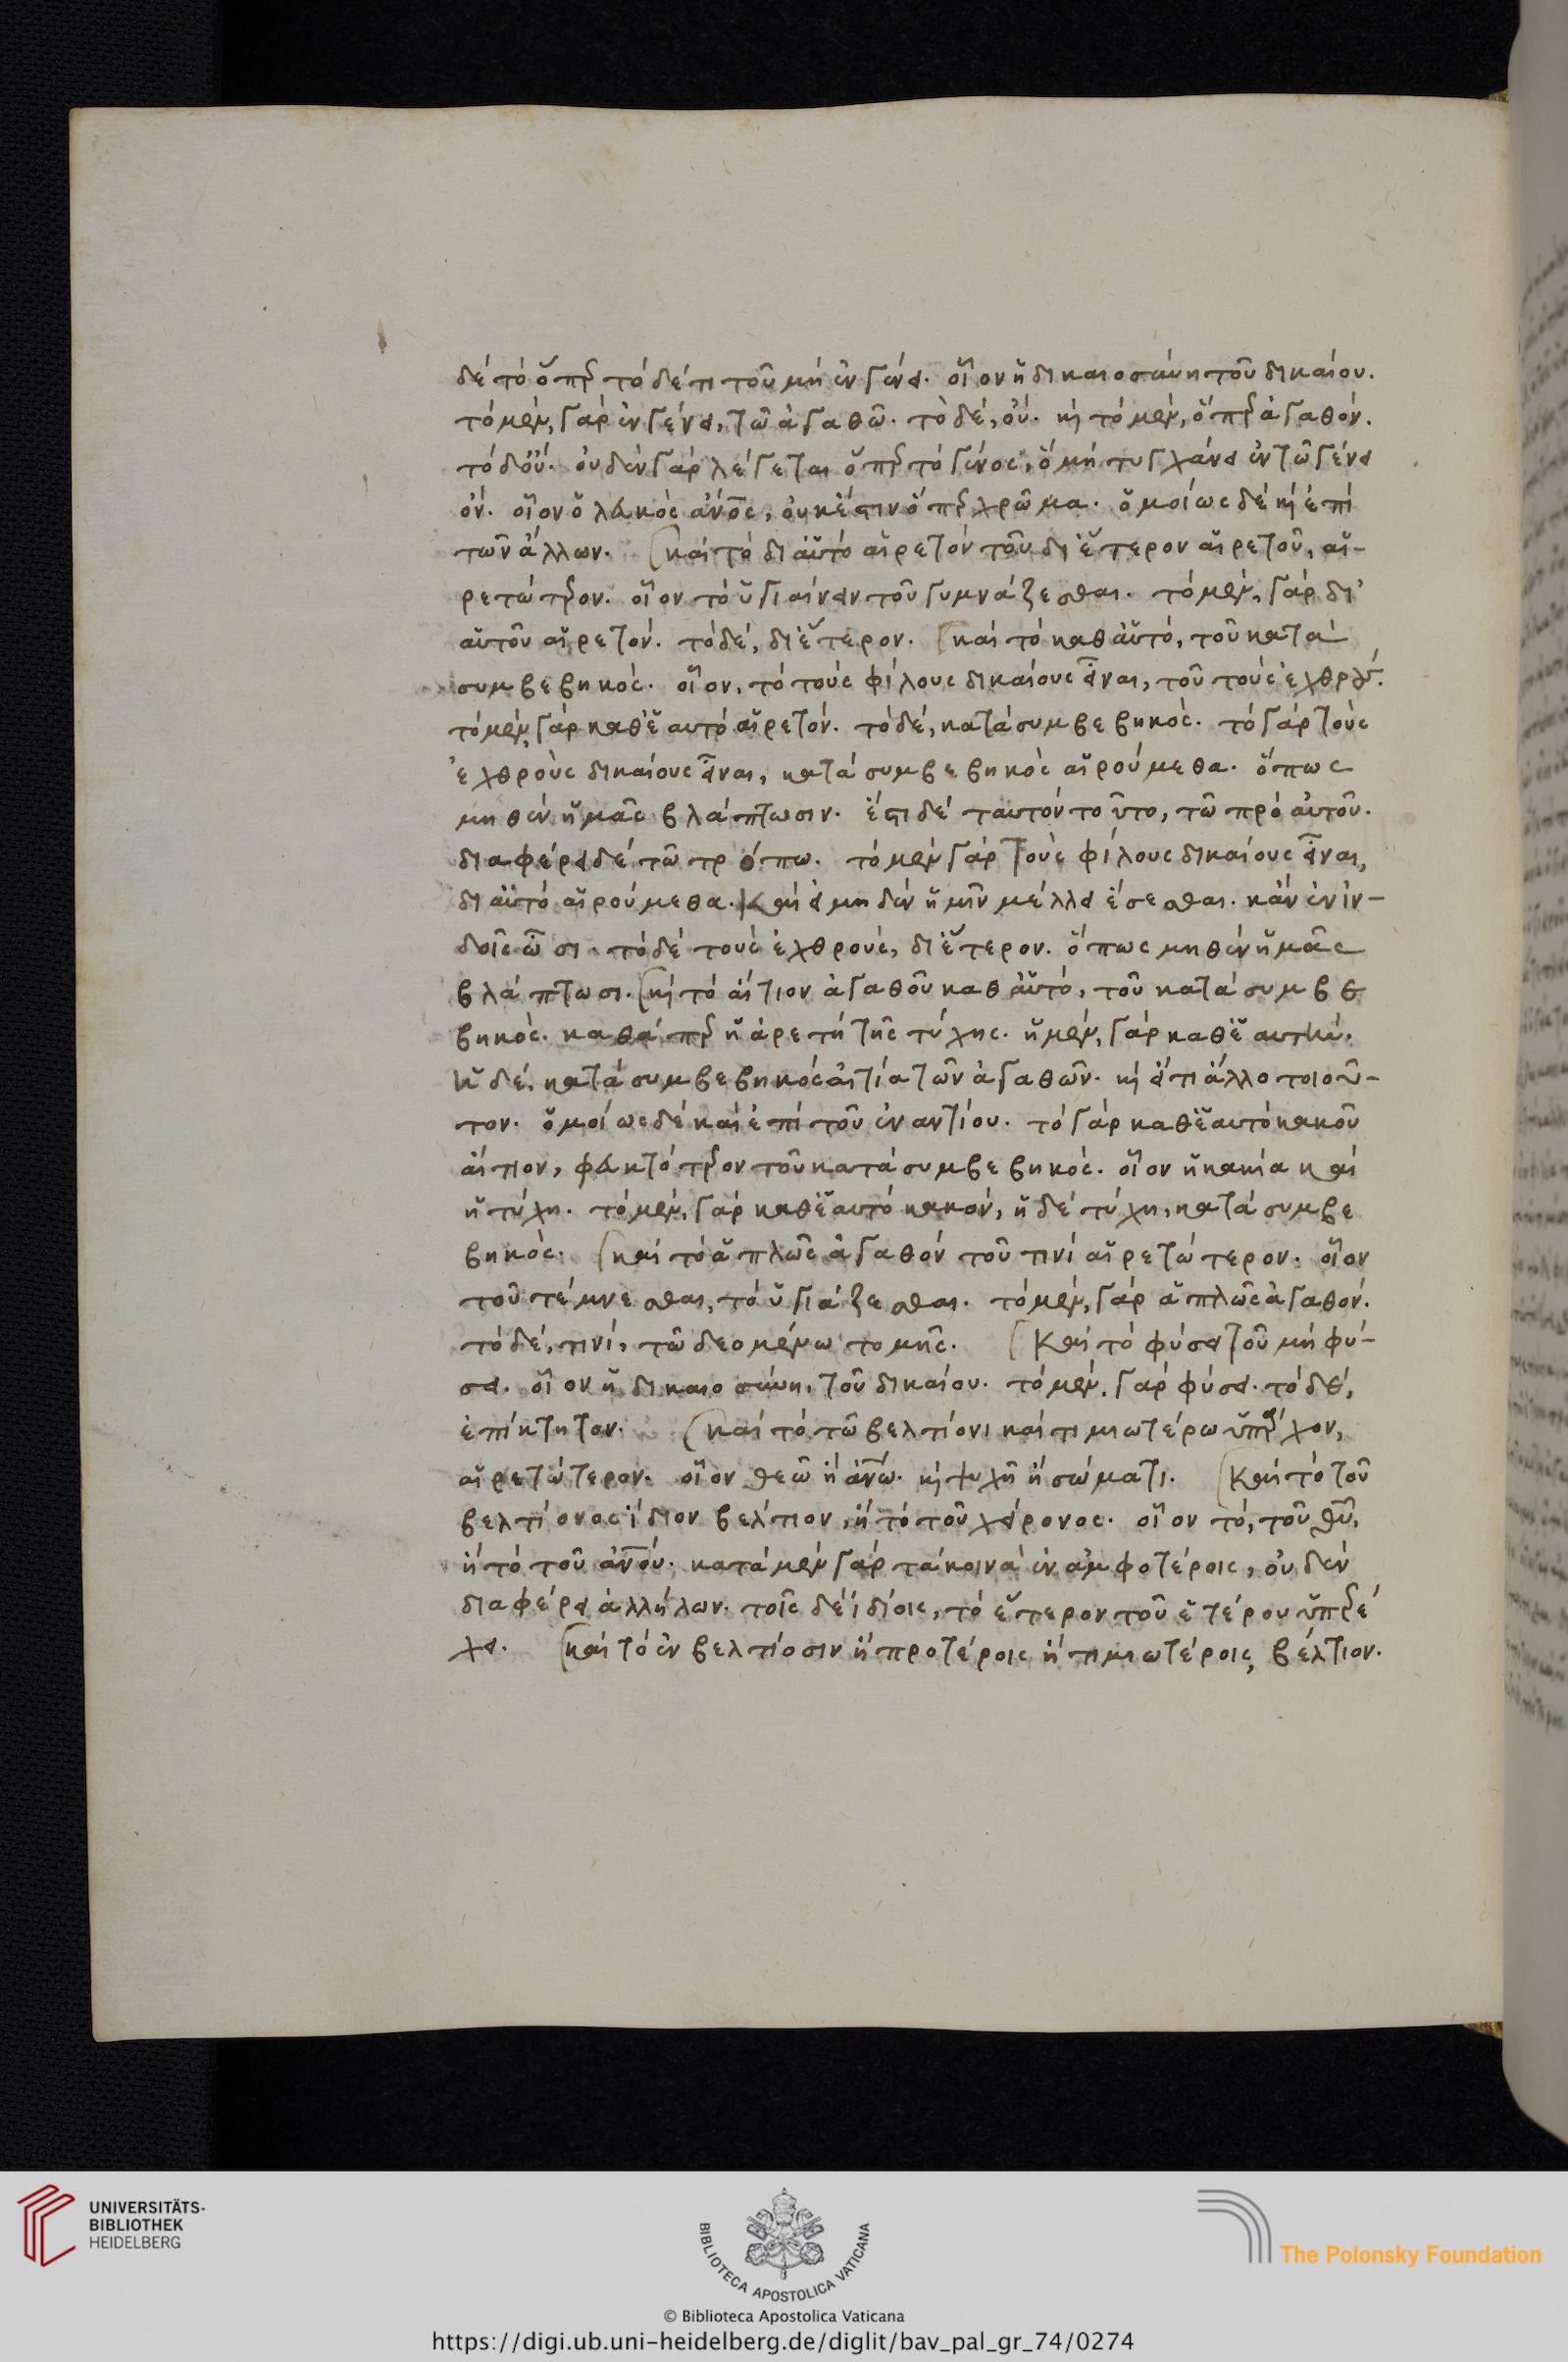 δὲ τὸ ὅπερ τόδε τι τοῦ μὴ ἐν γένει. οἷον ἡ δικαιοσύνη τοῦ δικαίου.
τὸ μὲν, γὰρ ἐν γένει, τῶ ἀγαθῶ. τὸ δὲ, οὔ. καὶ τὸ μὲν, ὅπερ ἀγαθόν.
τὸ δ' οὔ. οὐδὲν γὰρ λέγεται ὅπερ τὸ γένος, ὃ μὴ τυγχάνει ἐν τῶ γένει
ὄν. οἷον ὁ λευκὸς ἄνος, οὐκ ἔστιν ὅπερ χρῶμα. ὁμοίως δὲ καὶ ἐπὶ
τῶν ἄλλων. καὶ τὸ δι αὑτὸ αἱρετὸν τοῦ δι ἕτερον αἱρετοῦ, αἱ-
ρετώτερον. οἷον τὸ ὑγιαίνειν τοῦ γυμνάζεσθαι. τὸ μὲν, γὰρ δι'
αὑτοῦ αἱρετόν. τὸ δὲ, δι ἕτερον. καὶ τὸ καθ αὑτὸ, τοῦ κατὰ
συμβεβηκός. οἷον, τὸ τοὺς φίλους δικαίους εἶναι, τοῦ τοὺς ἐχθρούς.
τὸ μὲν, γὰρ καθ ἑαυτὸ αἱρετόν. τὸ δὲ, κατὰ συμβεβηκός. τὸ γὰρ τοὺς
ἐχθροὺς δικαίους εἶναι, κατὰ συμβεβηκὸς αἱρούμεθα. ὅπως
μηθὲν ἡμᾶς βλάπτωσιν. ἔστι δὲ ταυτὸν τοῦτο, τῶ πρὸ αὐτοῦ.
διαφέρει δὲ τῶ τρόπω. τὸ μὲν γὰρ τοὺς φίλους δικαίους εἶναι,
δι αὑτὸ αἱρούμεθα. καὶ εἰ μηδὲν ἡμῖν μέλλει ἔσεσθαι. κἂν ἐν ἰν-
δοῖς ὦσι. τὸ δὲ τοὺς ἐχθροὺς, δι ἕτερον. ὅπως μηθὲν ἡμᾶς
βλάπτωσι. καὶ τὸ αἴτιον ἀγαθοῦ καθ αὑτὸ, τοῦ κατὰ συμβε
βηκός. καθάπερ ἡ ἀρετὴ τῆς τύχης. ἡ μὲν, γὰρ καθ ἑαυτὴν.
ἡ δὲ, κατὰ συμβεβηκὸς αἰτία τῶν ἀγαθῶν. καὶ εἴ τι ἄλλο τοιοῦ-
τον. ὁμοίως δὲ καὶ ἐπὶ τοῦ ἐναντίου. τὸ γὰρ καθ ἑαυτὸ κακοῦ
αἴτιον, φευκτότερον τοῦ κατὰ συμβεβηκός. οἷον ἡ κακία καὶ
ἡ τύχη. τὸ μὲν, γὰρ καθ ἑαυτὸ κακόν, ἡ δὲ τύχη, κατὰ συμβε
βηκός. καὶ τὸ ἁπλῶς ἀγαθὸν τοῦ τινὶ αἱρετώτερον. οἷον
τοῦ τέμνεσθαι, τὸ ὑγιάζεσθαι. τὸ μὲν, γὰρ ἁπλῶς ἀγαθόν.
τὸ δὲ, τινί, τῶ δεομένω τομῆς. καὶ τὸ φύσει τοῦ μὴ φύ-
σει. οἷον ἡ δικαιοσύνη, τοῦ δικαίου. τὸ μὲν, γὰρ φύσει. τὸ δὲ,
ἐπίκτητον. καὶ τὸ τῶ βελτίονι καὶ τιμιωτέρω ὑπάρχον,
αἱρετώτερον. οἷον θεῶ ἢ ἀνω. καὶ ψυχῆ ἢ σώματι. καὶ τὸ τοῦ
βελτίονος ἴδιον βέλτιον, ἢ τὸ τοῦ χείρονος. οἷον τὸ, τοῦ θυ,
ἢ τὸ τοῦ ἀνου. κατὰ μὲν γὰρ τὰ κοινὰ ἐν ἀμφοτέροις, οὐδὲν
διαφέρει ἀλλήλων. τοῖς δὲ ἰδίοις, τὸ ἕτερον τοῦ ἑτέρου ὑπερέ
χει. καὶ τὸ ἐν βελτίοσιν ἢ προτέροις ἢ τιμιωτέροις, βέλτιον.
UNIVERSITÄTS-
BIBLIOTHEK
HEIDELBERG
BIBLIOTECA APOSTOLICA VATICANA
The Polonsky Foundation
© Biblioteca Apostolica Vaticana
https://digi.ub.uni-heidelberg.de/diglit/bav_pal_gr_74/0274